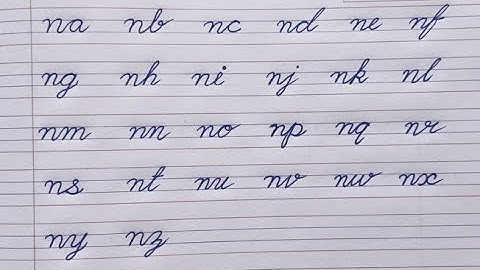 na nb nc nd ne nf
ng nh ni nj nk nl
nm nn no np nq nr
ns nt nu nv nw nx
ny nz